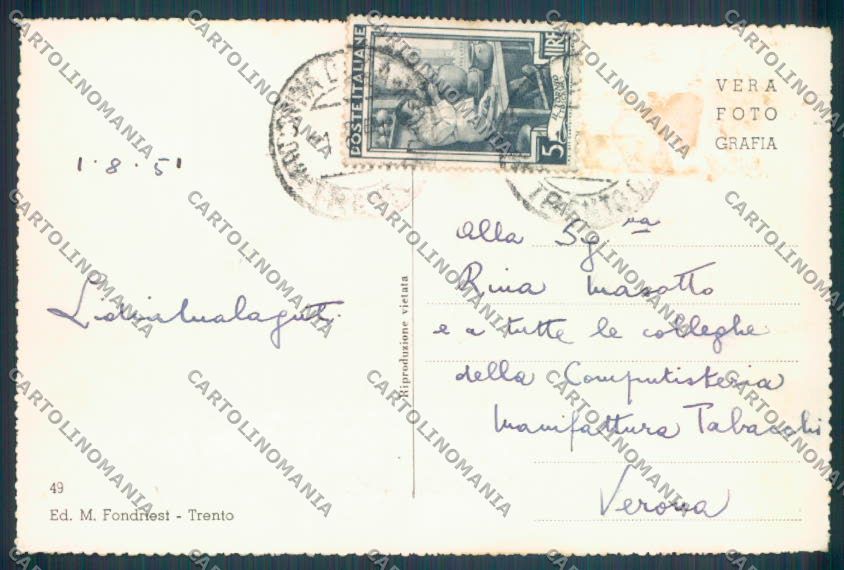 POSTE ITALIANE
LIRE
5
VERA
FOTO
GRAFIA
1·8·51
Alla Sg.ra
Rina Masotto
e a tutte le colleghe
della Computisteria
Manifattura Tabacchi
Verona
Riproduzione vietata
49
Ed. M. Fondriest - Trento
CARTOLINOMANIA